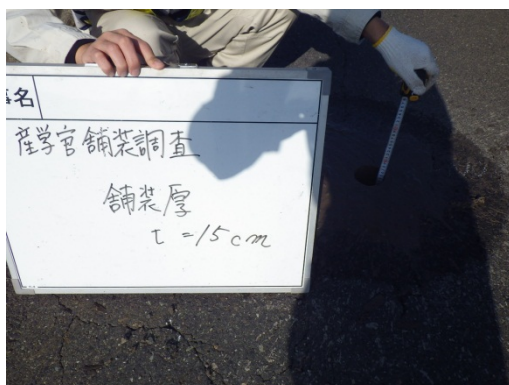 事名
産学官舗装調査
舗装厚
t=15cm